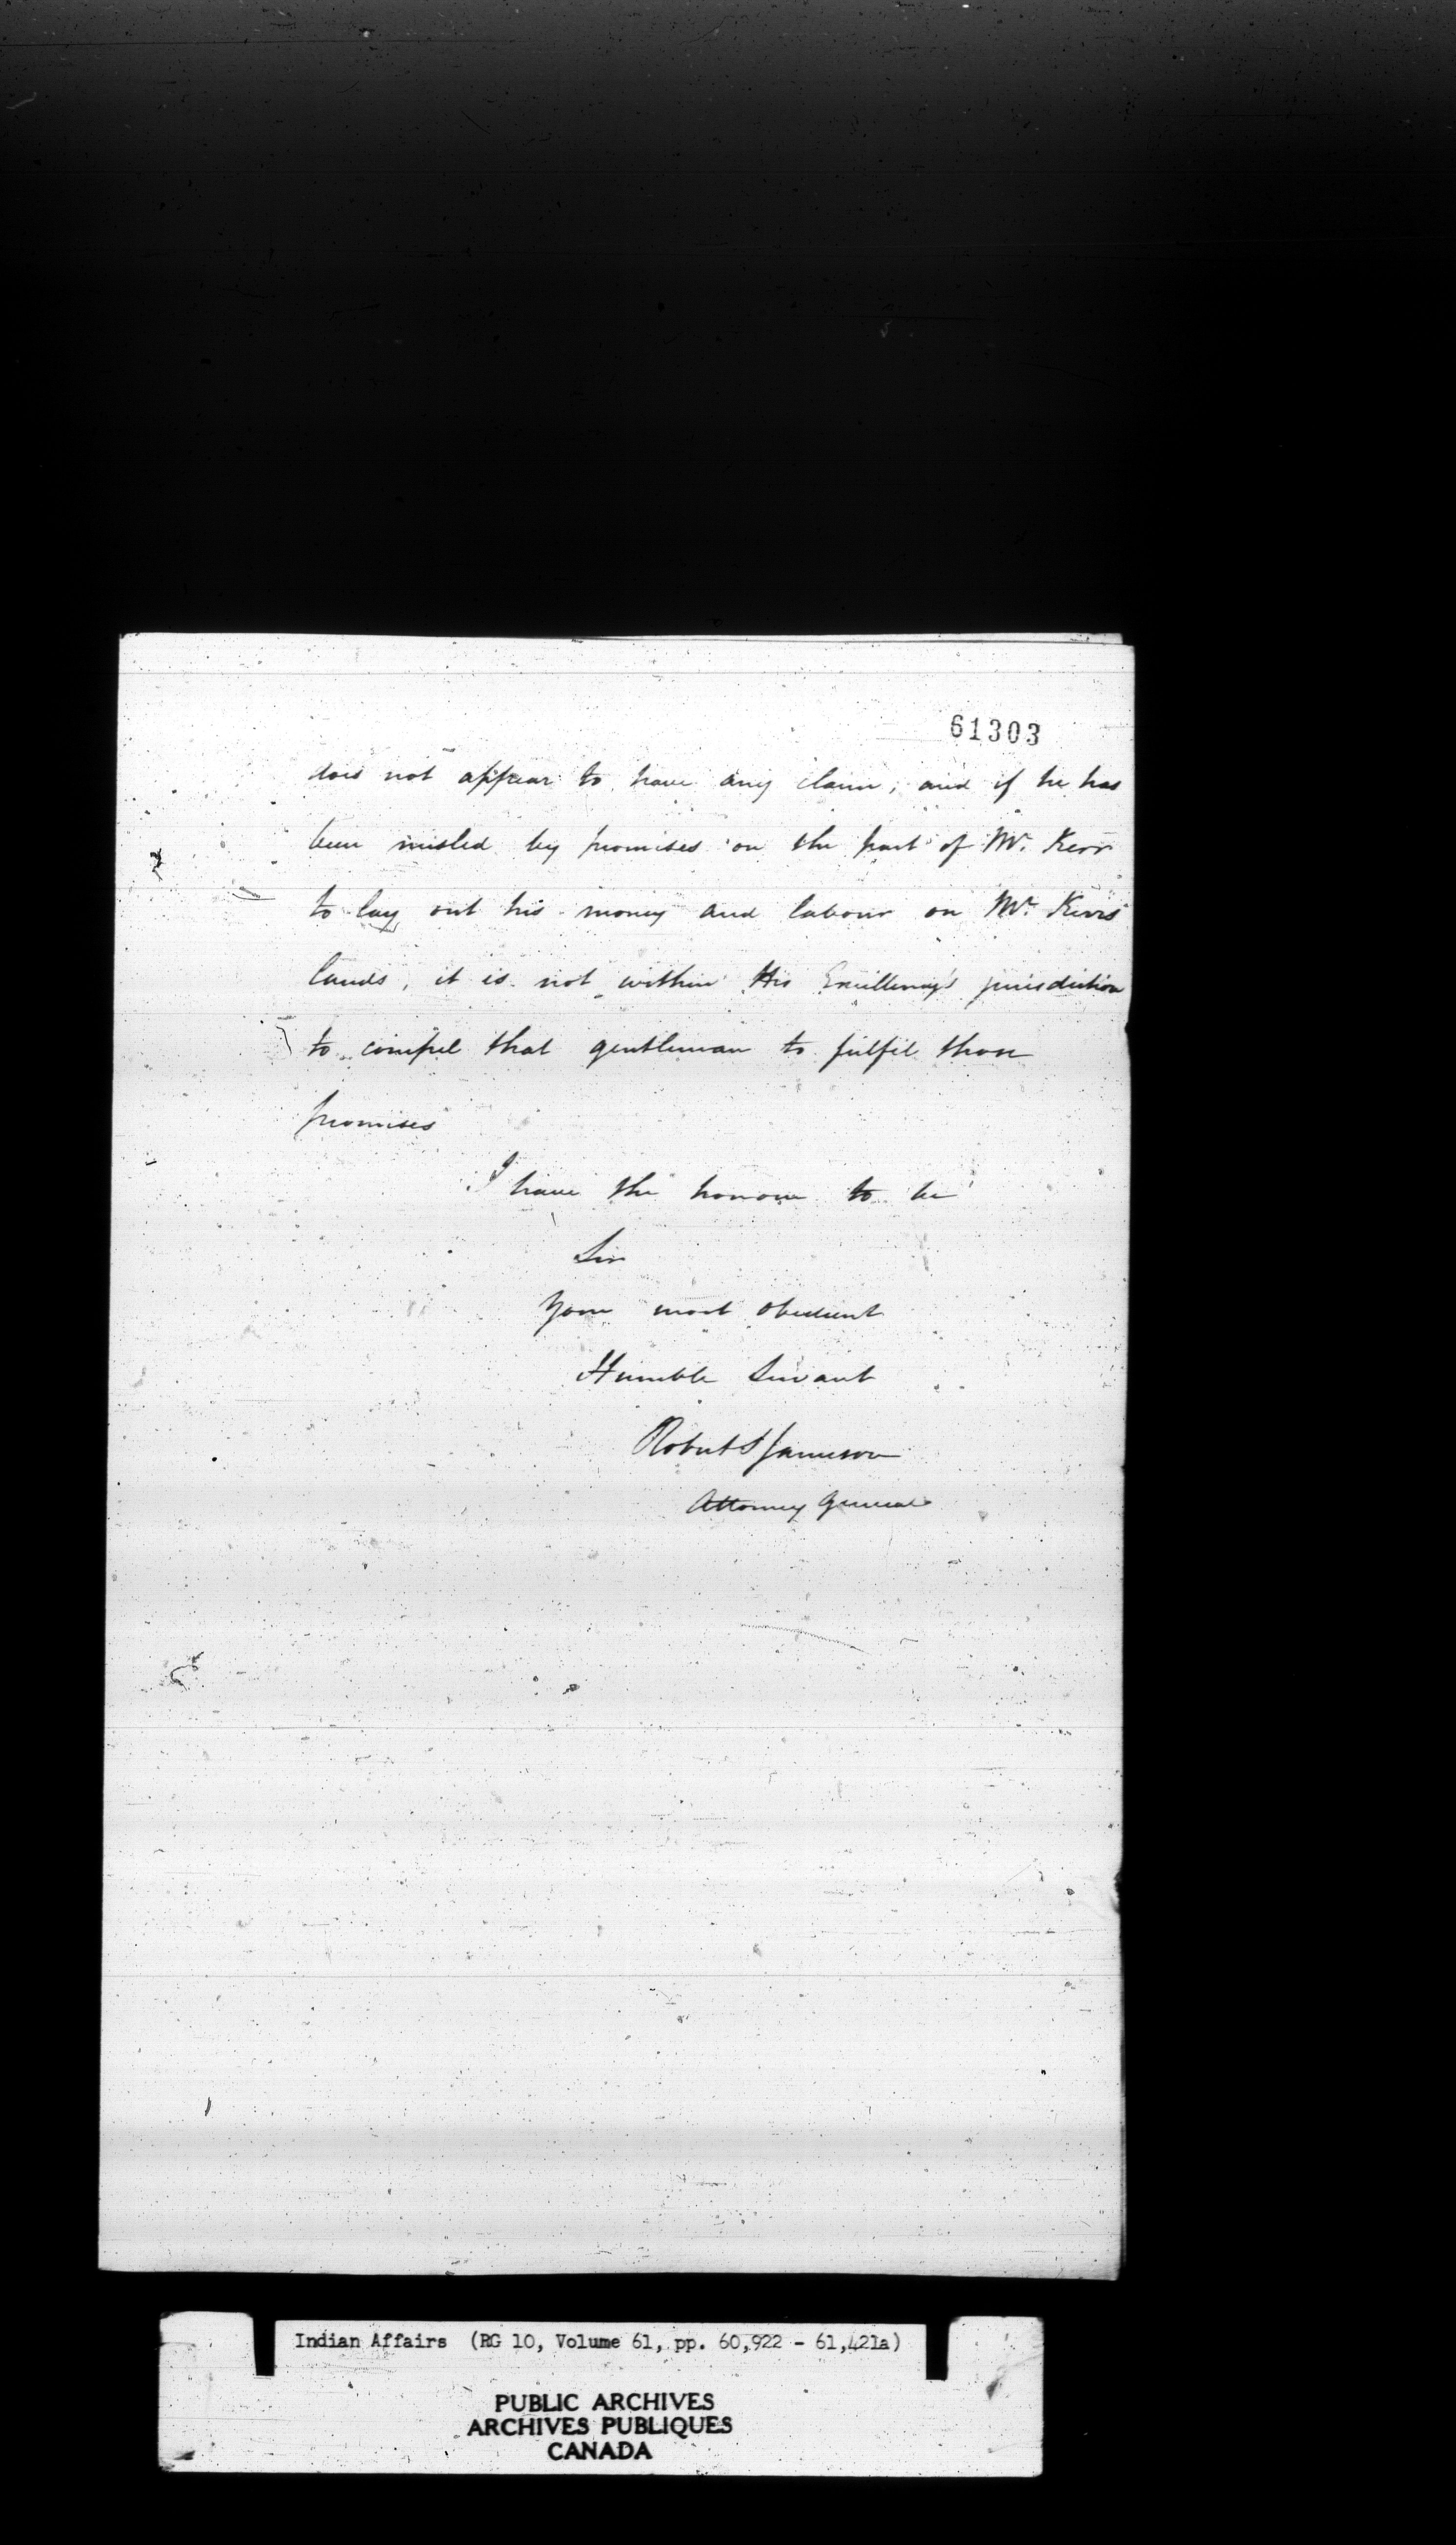 61303
does not appear to have any claim, and if he has
been misled by promises on the part of Mr. Kerr
to lay out his money and labour on Mr. Kerrs
lands, it is not within His Excellency's jurisdiction
to compel that gentleman to fulfil those
promises
I have the honour to be
Sir
Your most obedient
Humble Servant
Robert S Jameson
Attorney General
Indian Affairs (RG 10, Volume 61, pp. 60,922 - 61,421a)
PUBLIC ARCHIVES
ARCHIVES PUBLIQUES
CANADA